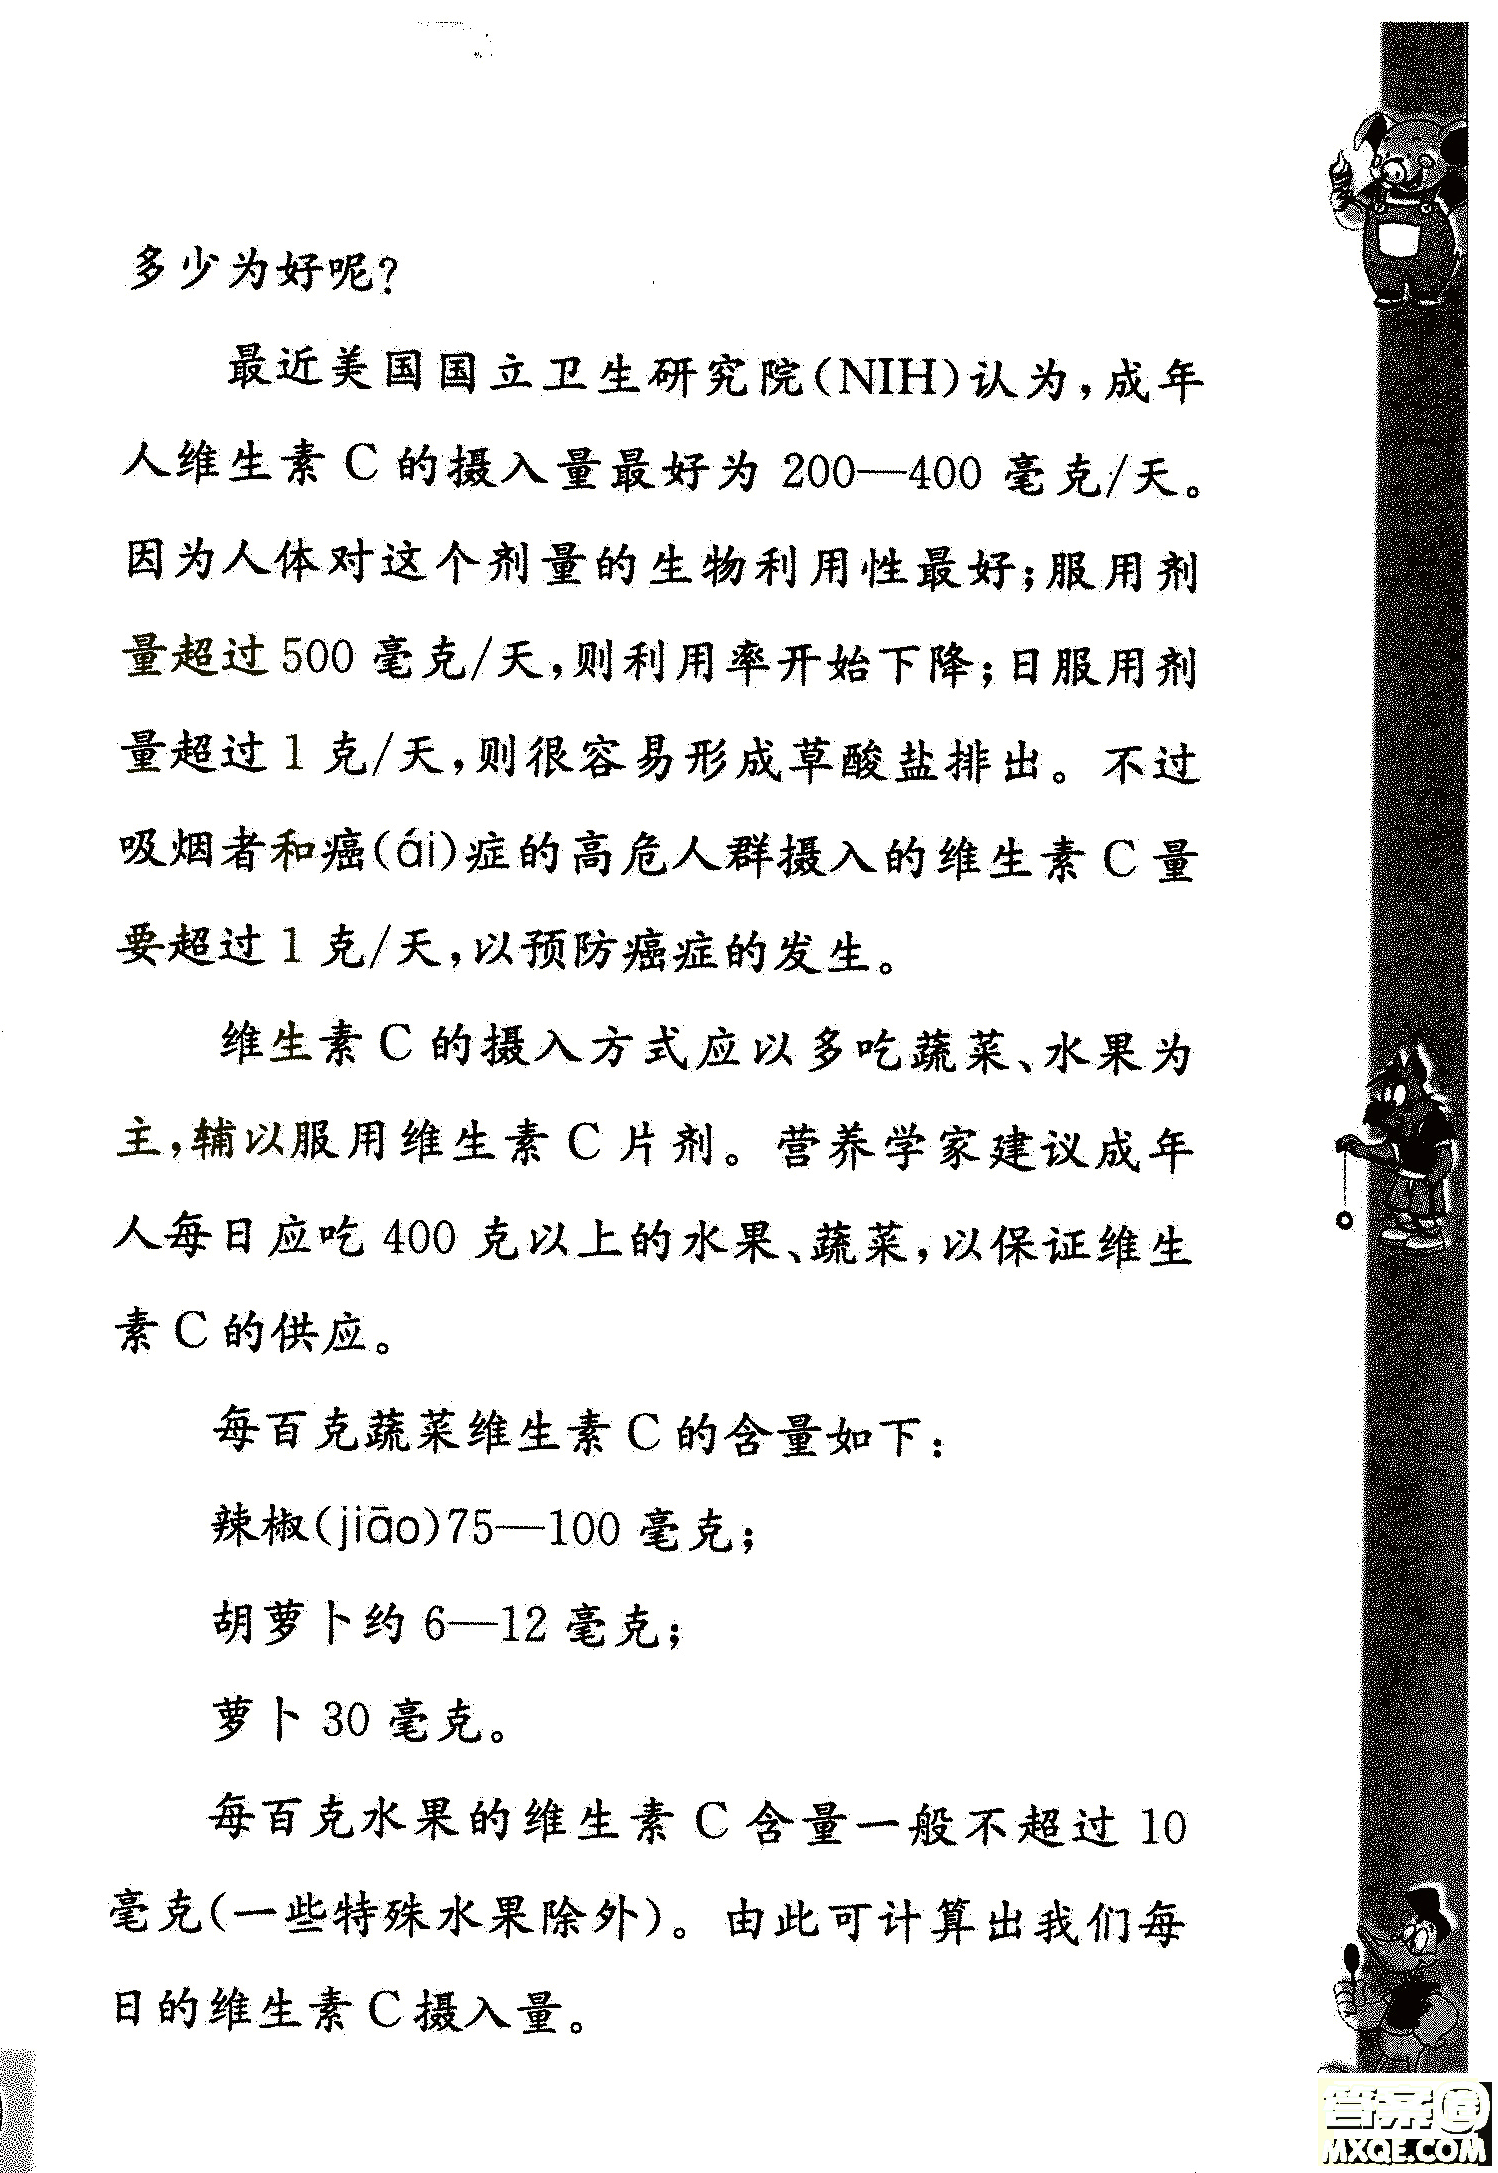 多少为好呢?
最近美国国立卫生研究院(NIH)认为,成年
人维生素 C 的摄入量最好为 200—400 毫克/天。
因为人体对这个剂量的生物利用性最好;服用剂
量超过 500 毫克/天,则利用率开始下降;日服用剂
量超过 1 克/天,则很容易形成草酸盐排出。不过
吸烟者和癌(ái)症的高危人群摄入的维生素 C 量
要超过 1 克/天,以预防癌症的发生。
维生素 C 的摄入方式应以多吃蔬菜、水果为
主,辅以服用维生素 C 片剂。营养学家建议成年
人每日应吃 400 克以上的水果、蔬菜,以保证维生
素 C 的供应。
每百克蔬菜维生素 C 的含量如下:
辣椒(jiāo)75—100 毫克;
胡萝卜约 6—12 毫克;
萝卜 30 毫克。
每百克水果的维生素 C 含量一般不超过 10
毫克(一些特殊水果除外)。由此可计算出我们每
日的维生素 C 摄入量。
答案圈
MXQE.COM